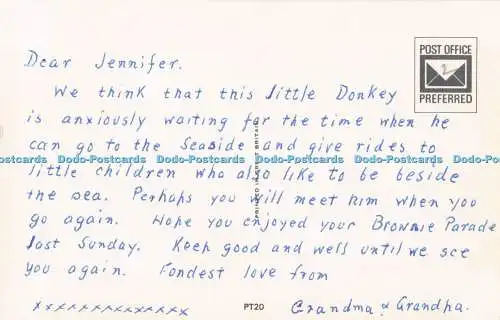 POST OFFICE
PREFERRED
Dear Jennifer.
We think that this little Donkey
is anxiously waiting for the time when he
can go to the Seaside and give rides to
Dodo-Postcards Dodo-Postcards Dodo-Postcards Dodo-Postcards Dodo-Postcards
little children who also like to be beside
the sea. Perhaps you will meet him when you
go again. Hope you enjoyed your Brownie Parade
last Sunday. Keep good and well until we see
you again. Fondest love from
Grandma & Grandpa.
xxxxxxxxxxxxxx
PRINTED IN GREAT BRITAIN
PT20